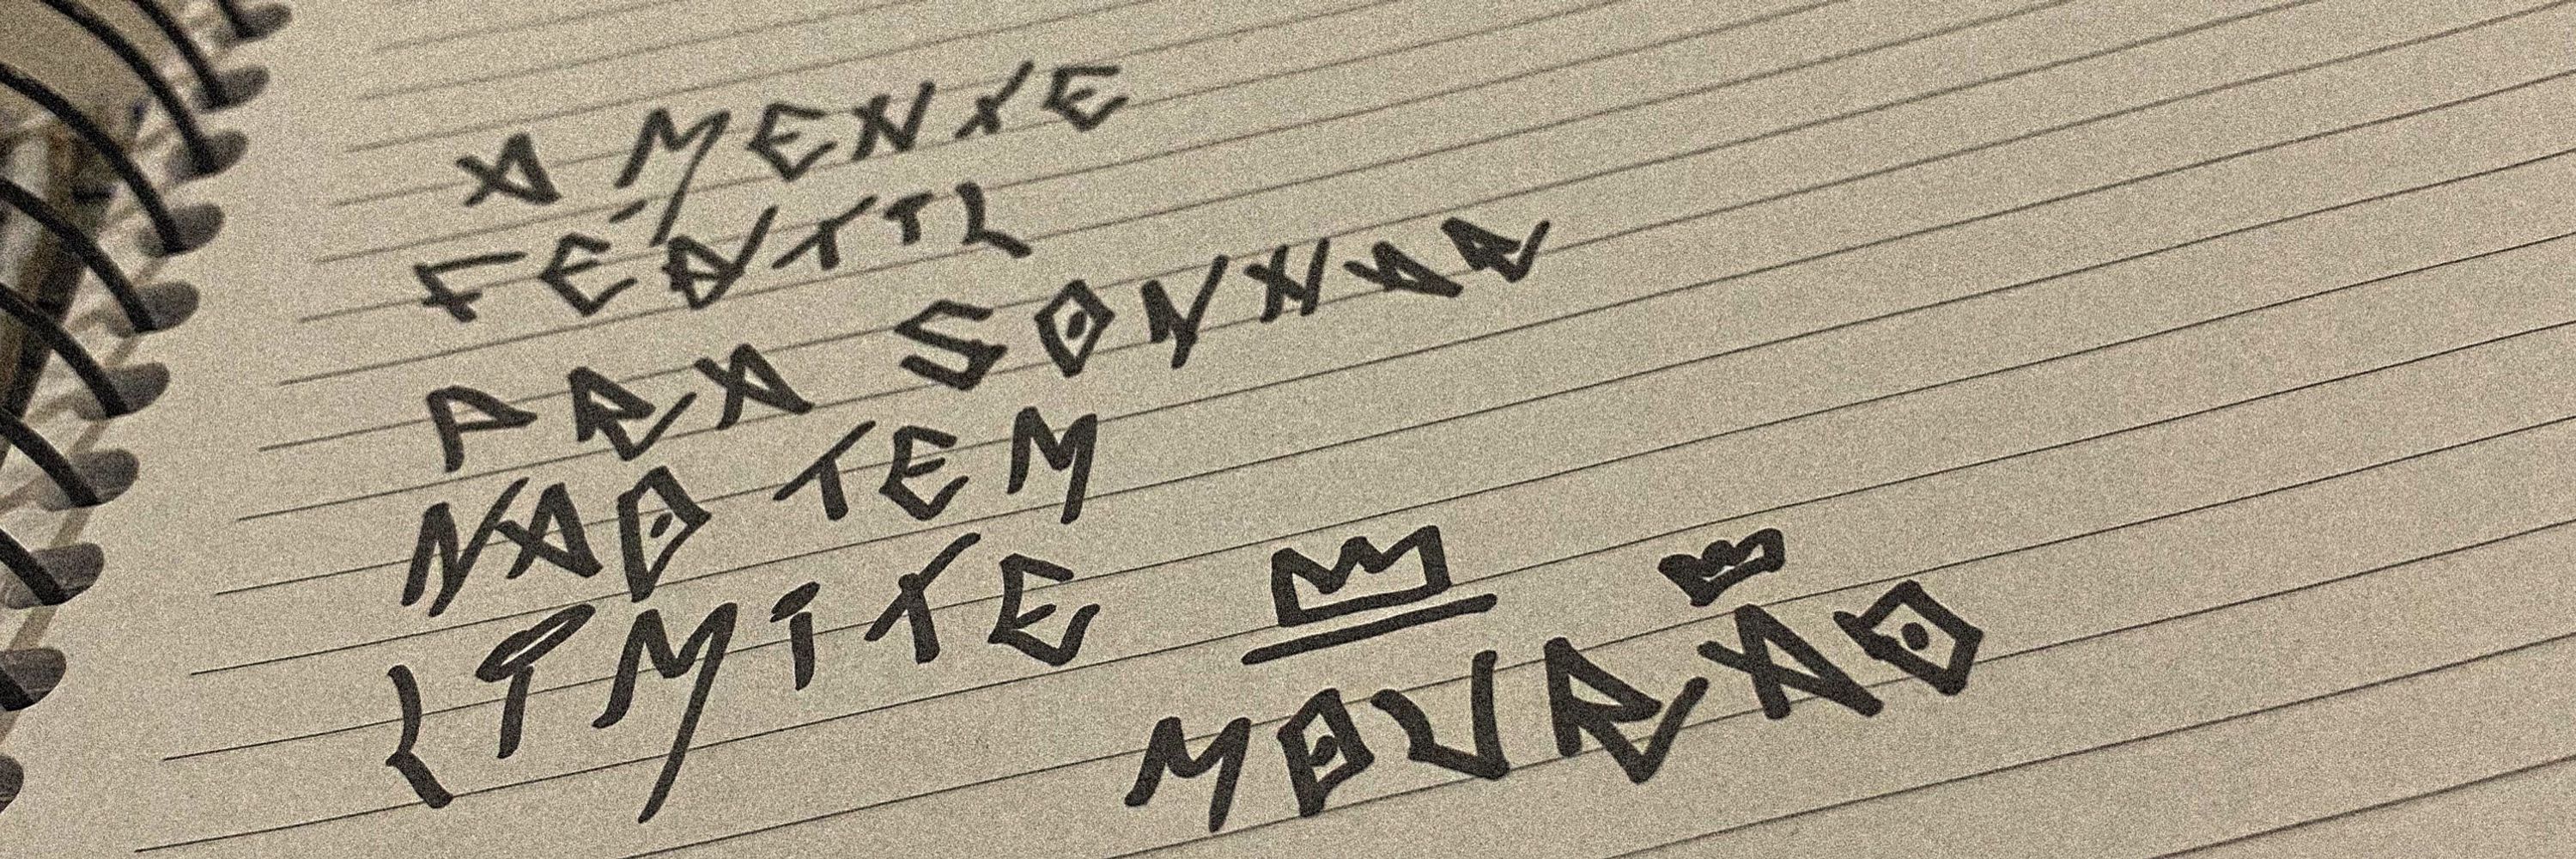 A MENTE
FÉRTIL
PRA SONHAR
NÃO TEM
LIMITE
MOURÃO